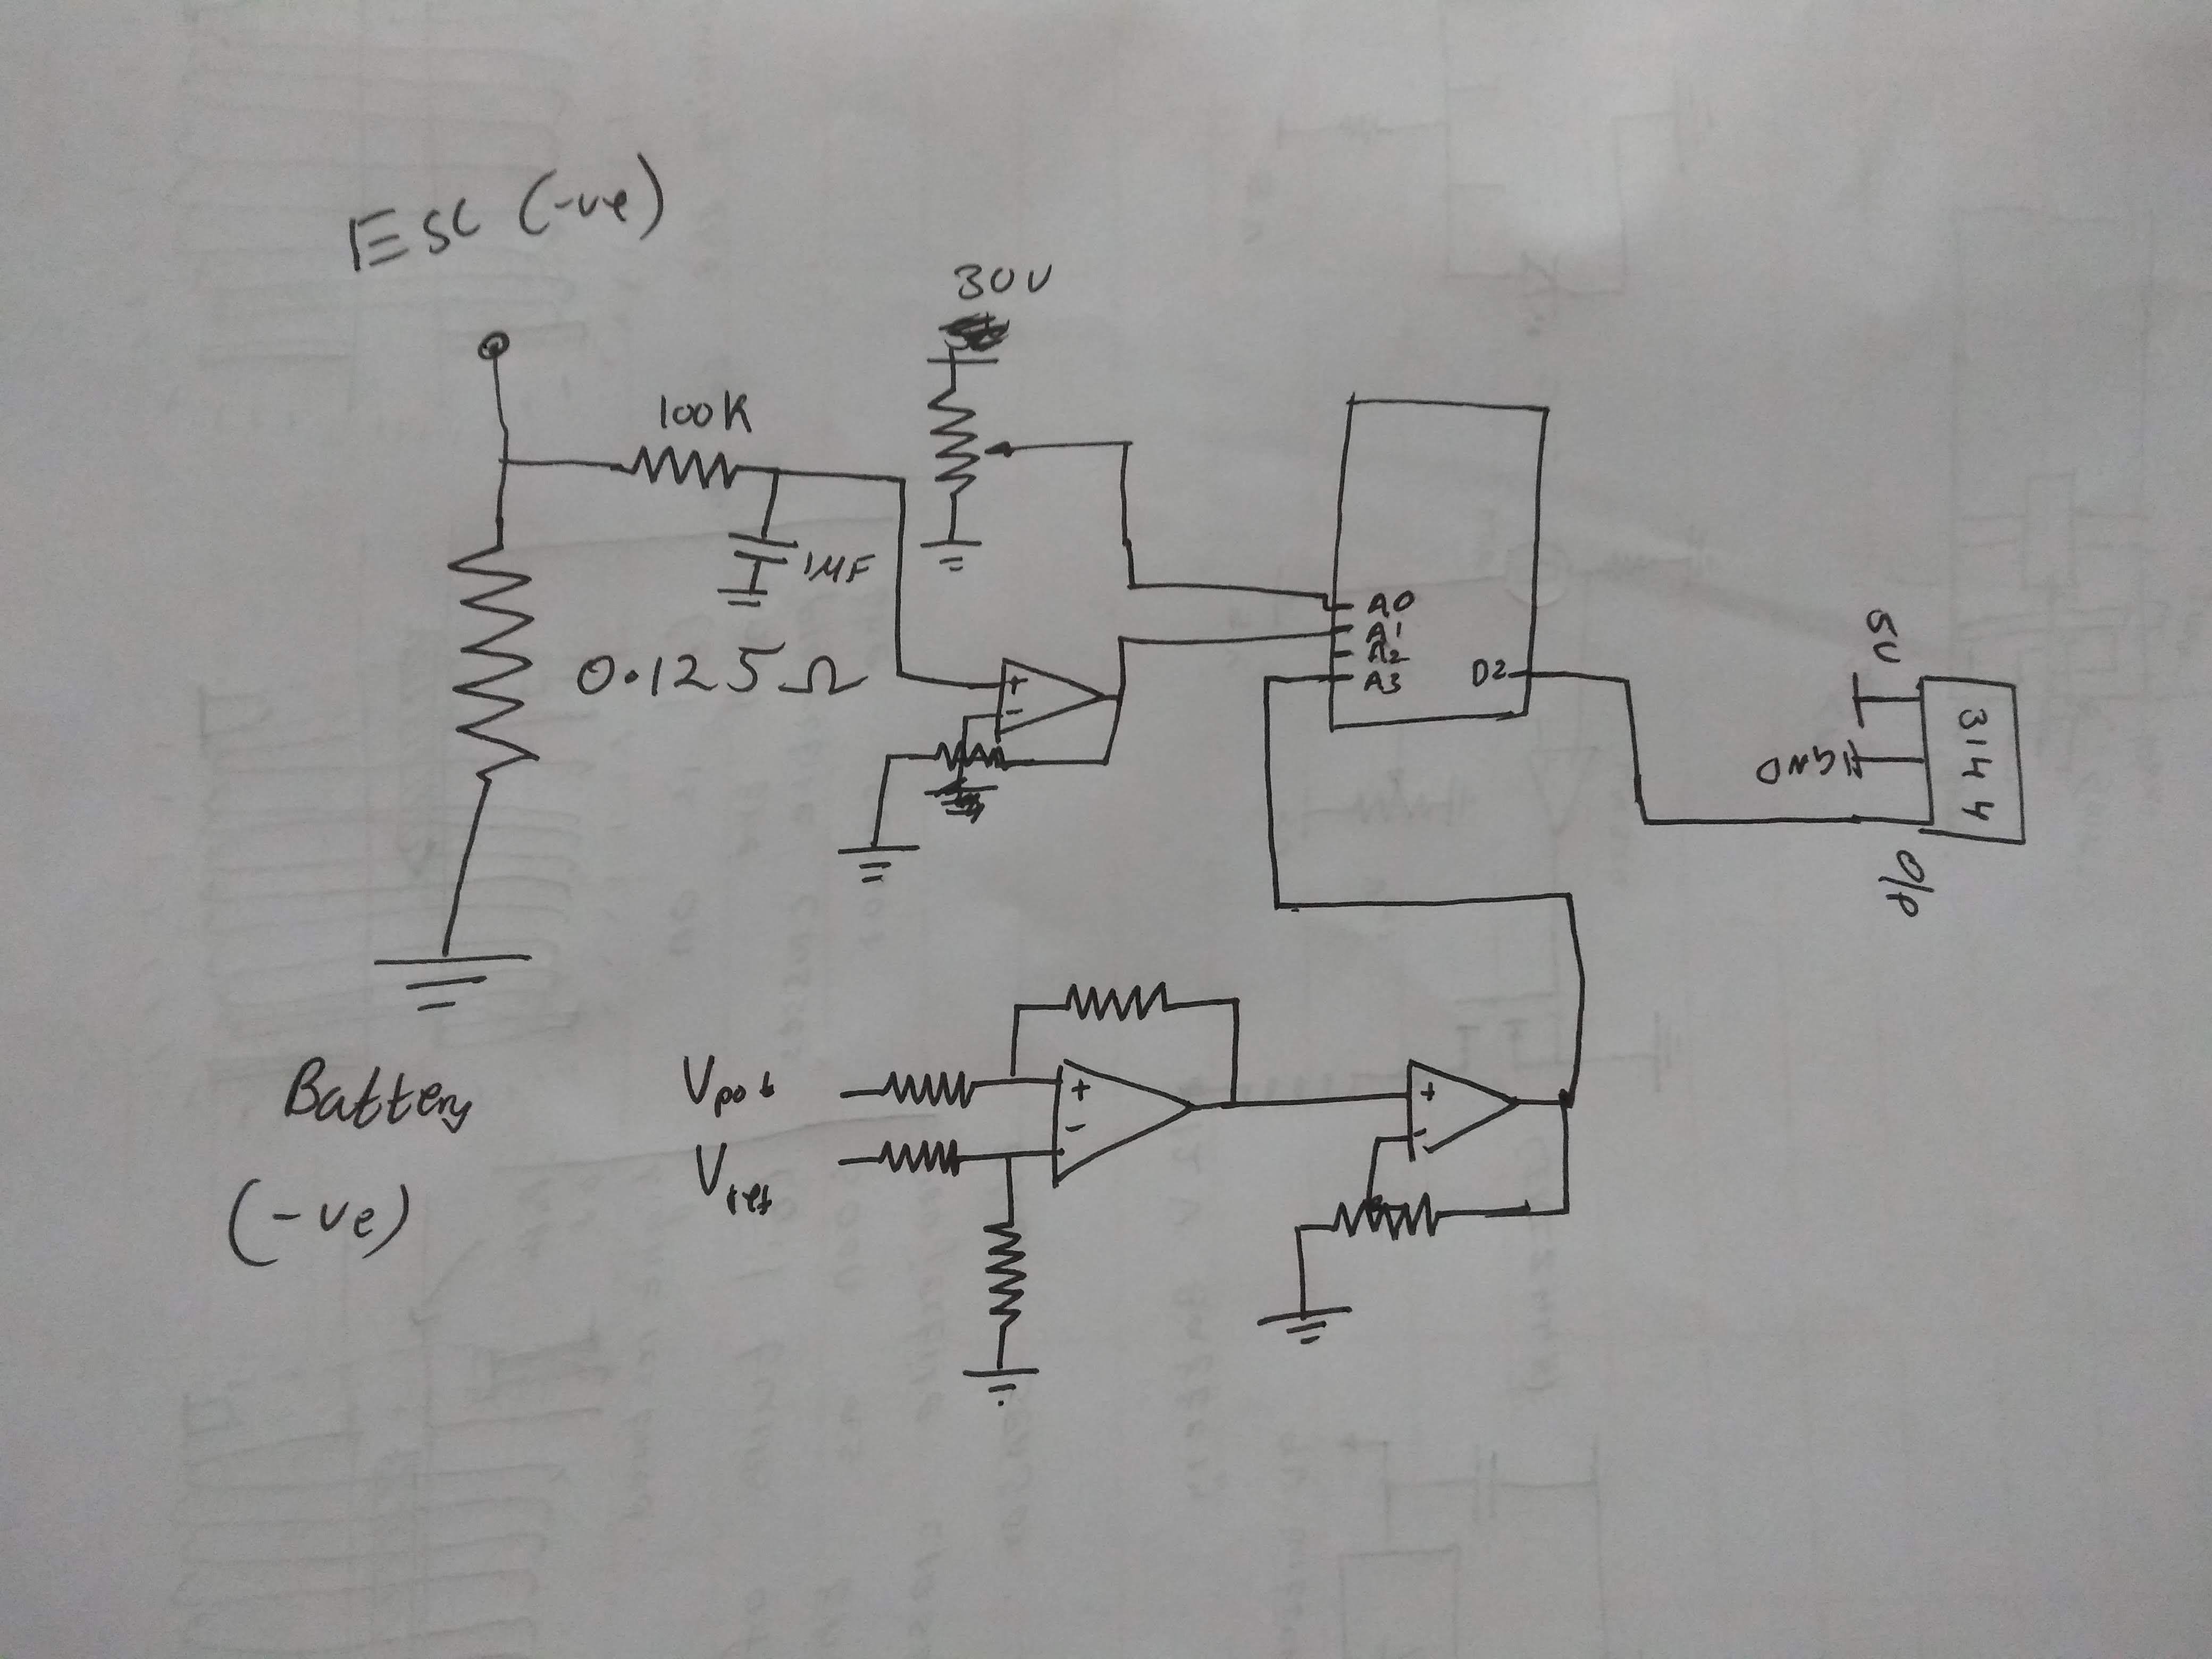 ESC (-ve)
30V
100K
1MF
0.125Ω
+
-
A0
A1
A2
A3
D2
5V
GND
3144
O/P
Battery
(-ve)
Vpot
+
-
Vref
+
-